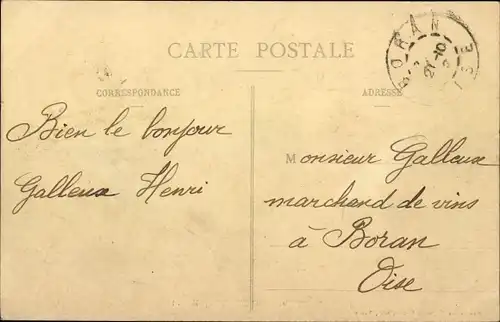 CARTE POSTALE
CORRESPONDANCE
ADRESSE
Bien le bonjour
Galleux Henri
Monsieur Galleux
marchand de vins
à Boran
Oise
BORAN
21-10
OISE